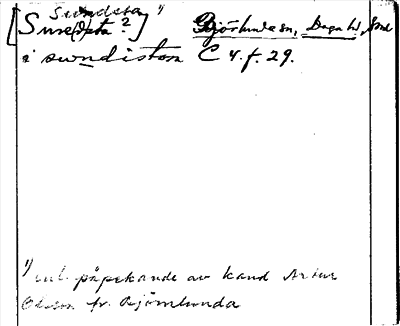 Sundsta 1)
[Sun(d)sta ?] Björlunda sn, Daga hd, Srml
i swndistom C 4. f. 29.
1) enl. påpekande av kand Artur
Olsson fr. Björnlunda